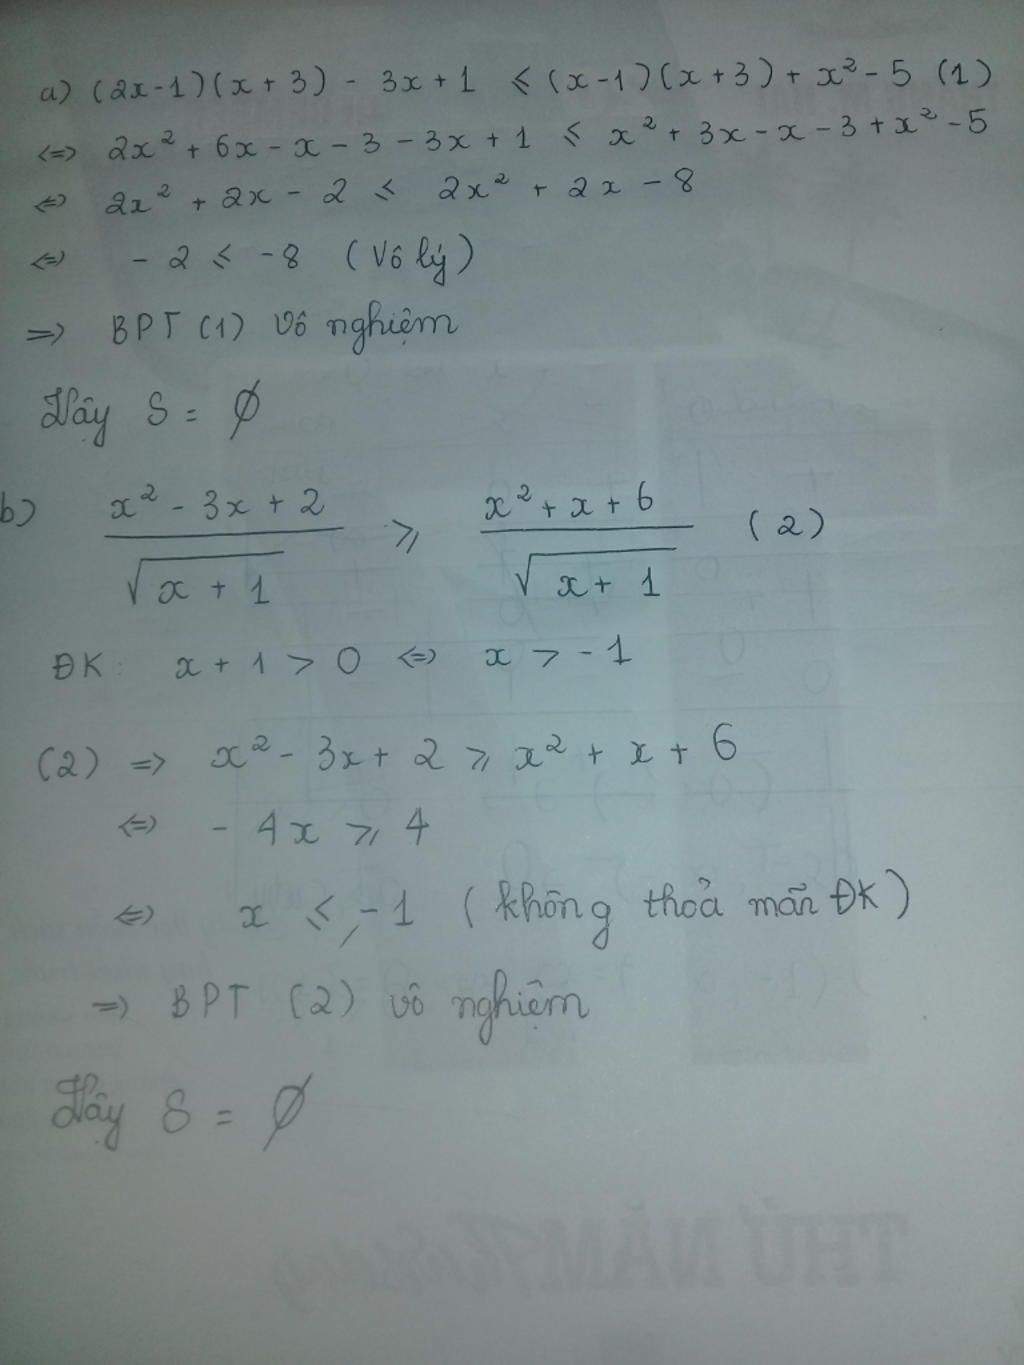 a) (2x-1)(x+3) - 3x+1 ≤ (x-1)(x+3) + x² - 5 (1)
<=> 2x² + 6x - x - 3 - 3x + 1 ≤ x² + 3x - x - 3 + x² - 5
<=> 2x² + 2x - 2 ≤ 2x² + 2x - 8
<=> - 2 ≤ -8 (Vô lý)
=> BPT (1) vô nghiệm
Vậy S = ∅
b) (x² - 3x + 2)/√(x + 1) ≥ (x² + x + 6)/√(x + 1) (2)
ĐK: x + 1 > 0 <=> x > -1
(2) => x² - 3x + 2 ≥ x² + x + 6
<=> - 4x ≥ 4
<=> x ≤ -1 (không thoả mãn ĐK)
=> BPT (2) vô nghiệm
Vậy S = ∅
THỨ NĂM